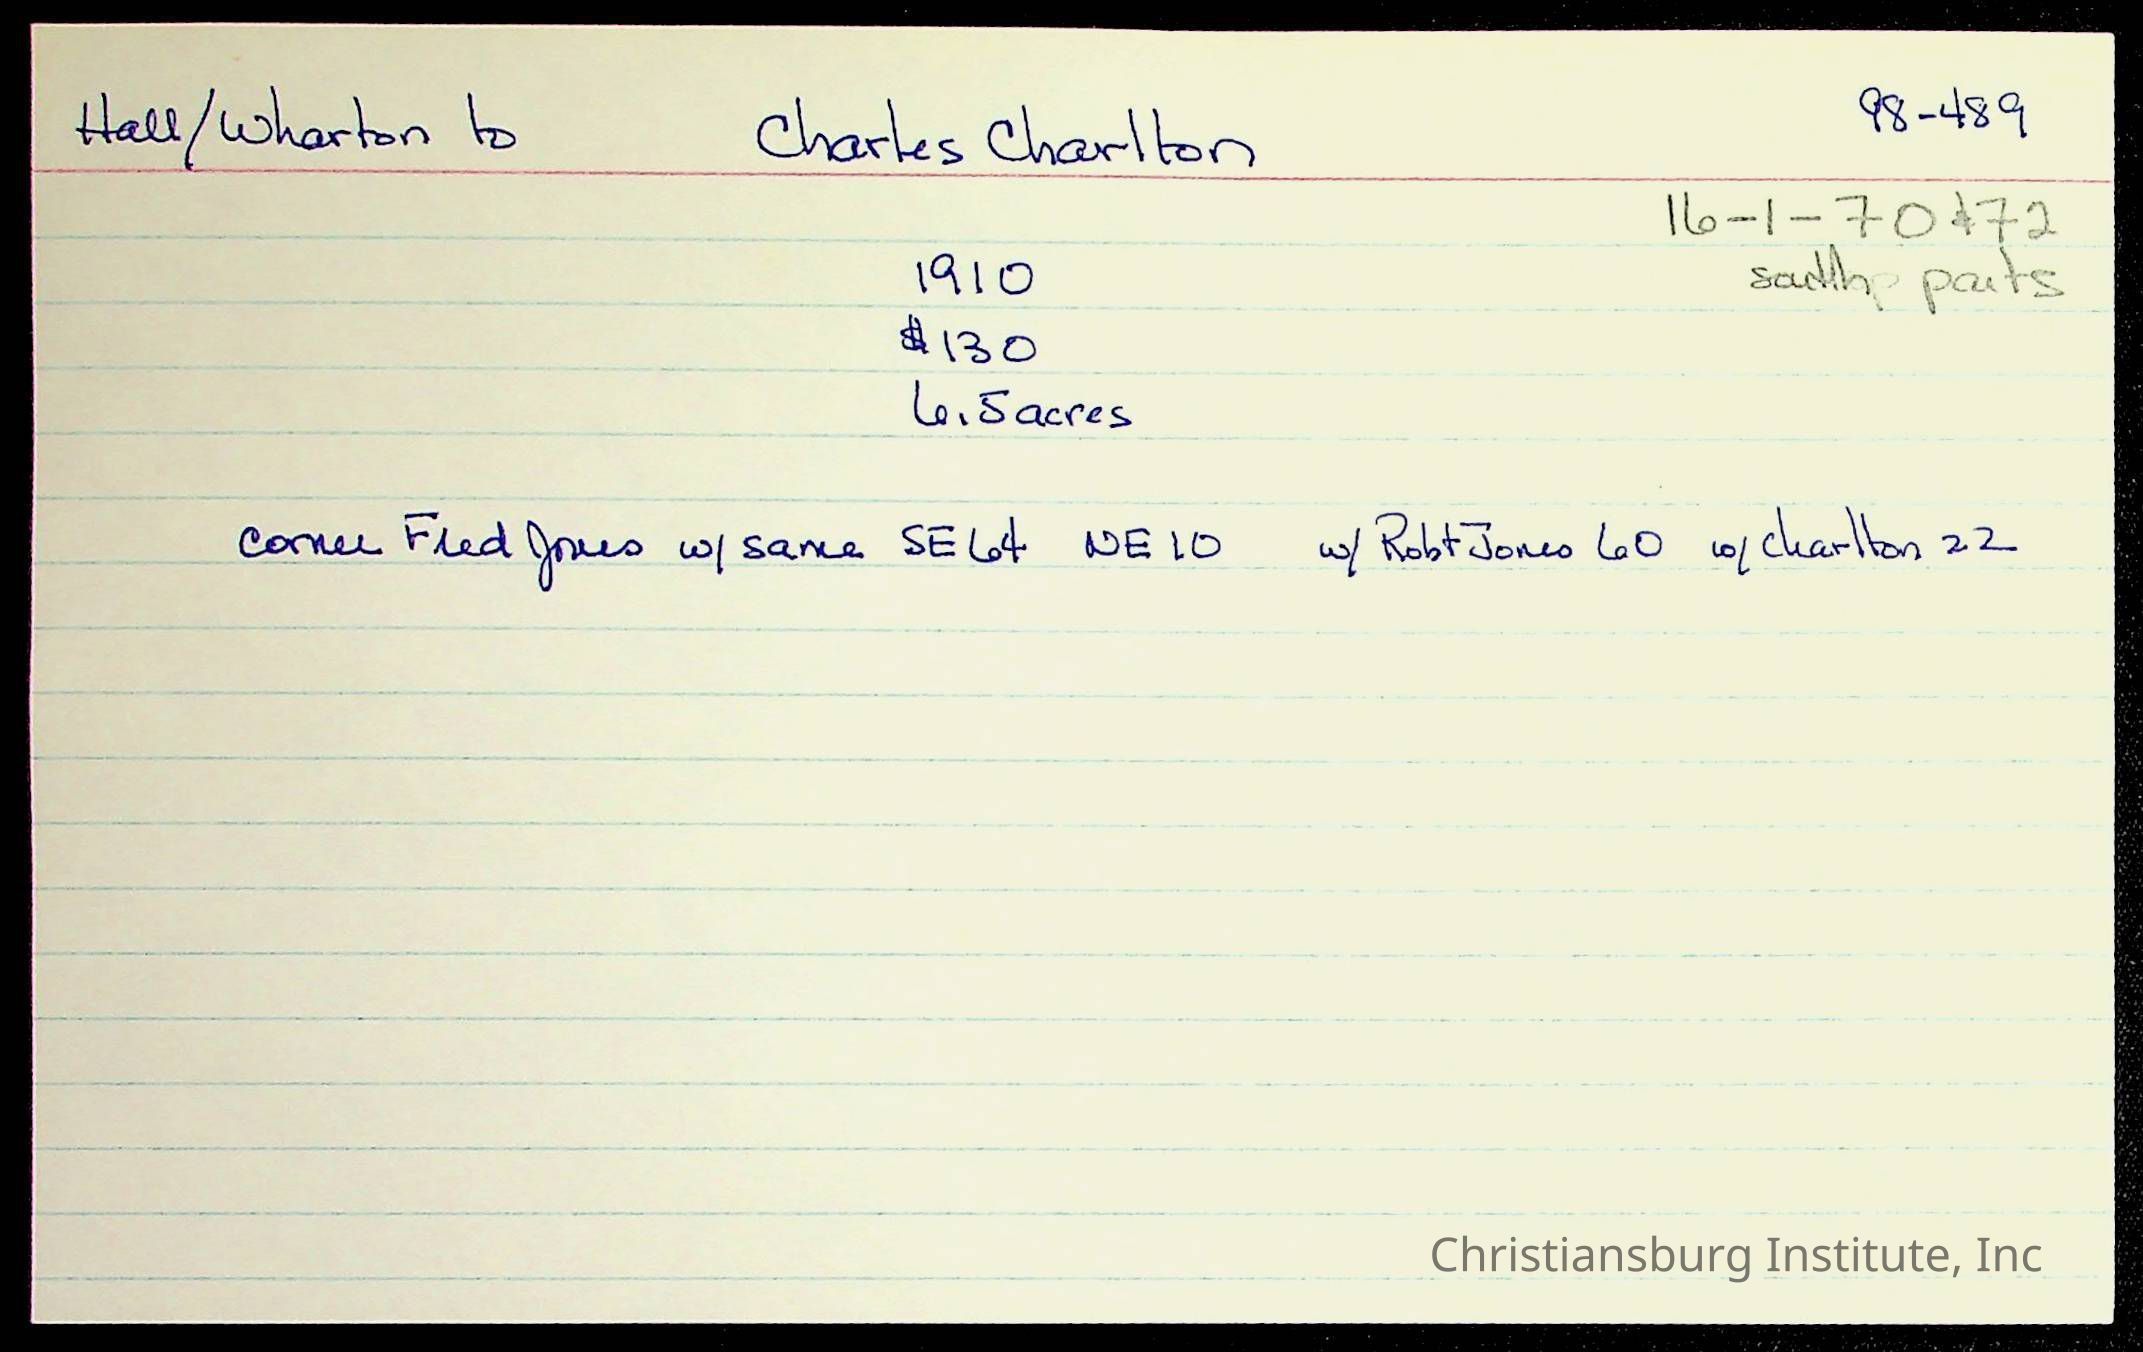 Hall/Wharton to Charles Charlton 98-489
16-1-70&72
parts
1910
$130
6.5 acres
corner Fred Jones w/ same SE64 NE10 w/ Robt Jones 60 w/ Charlton 22
Christiansburg Institute, Inc